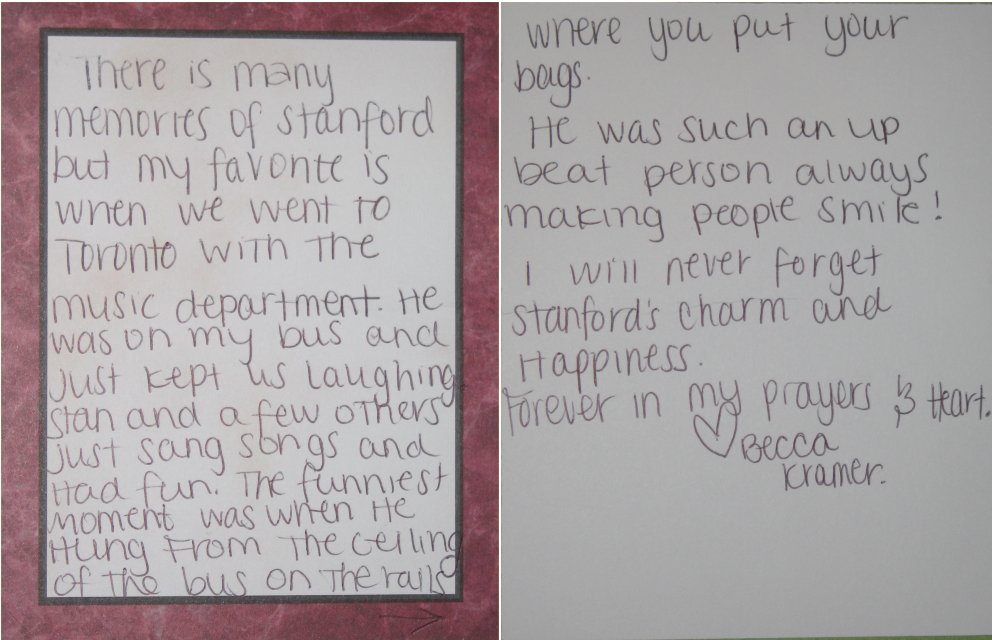 There is many
memories of stanford
but my favorite is
when we went to
Toronto with the
music department. He
was on my bus and
just kept us laughing
stan and a few others
just sang songs and
Had fun. The funniest
moment was when He
Hung From The ceiling
of the bus on The rails
where you put your
bags.
He was such an up
beat person always
making people smile!
I will never forget
stanford's charm and
Happiness.
Forever in my prayers & Heart.
♡ Becca
Kramer.